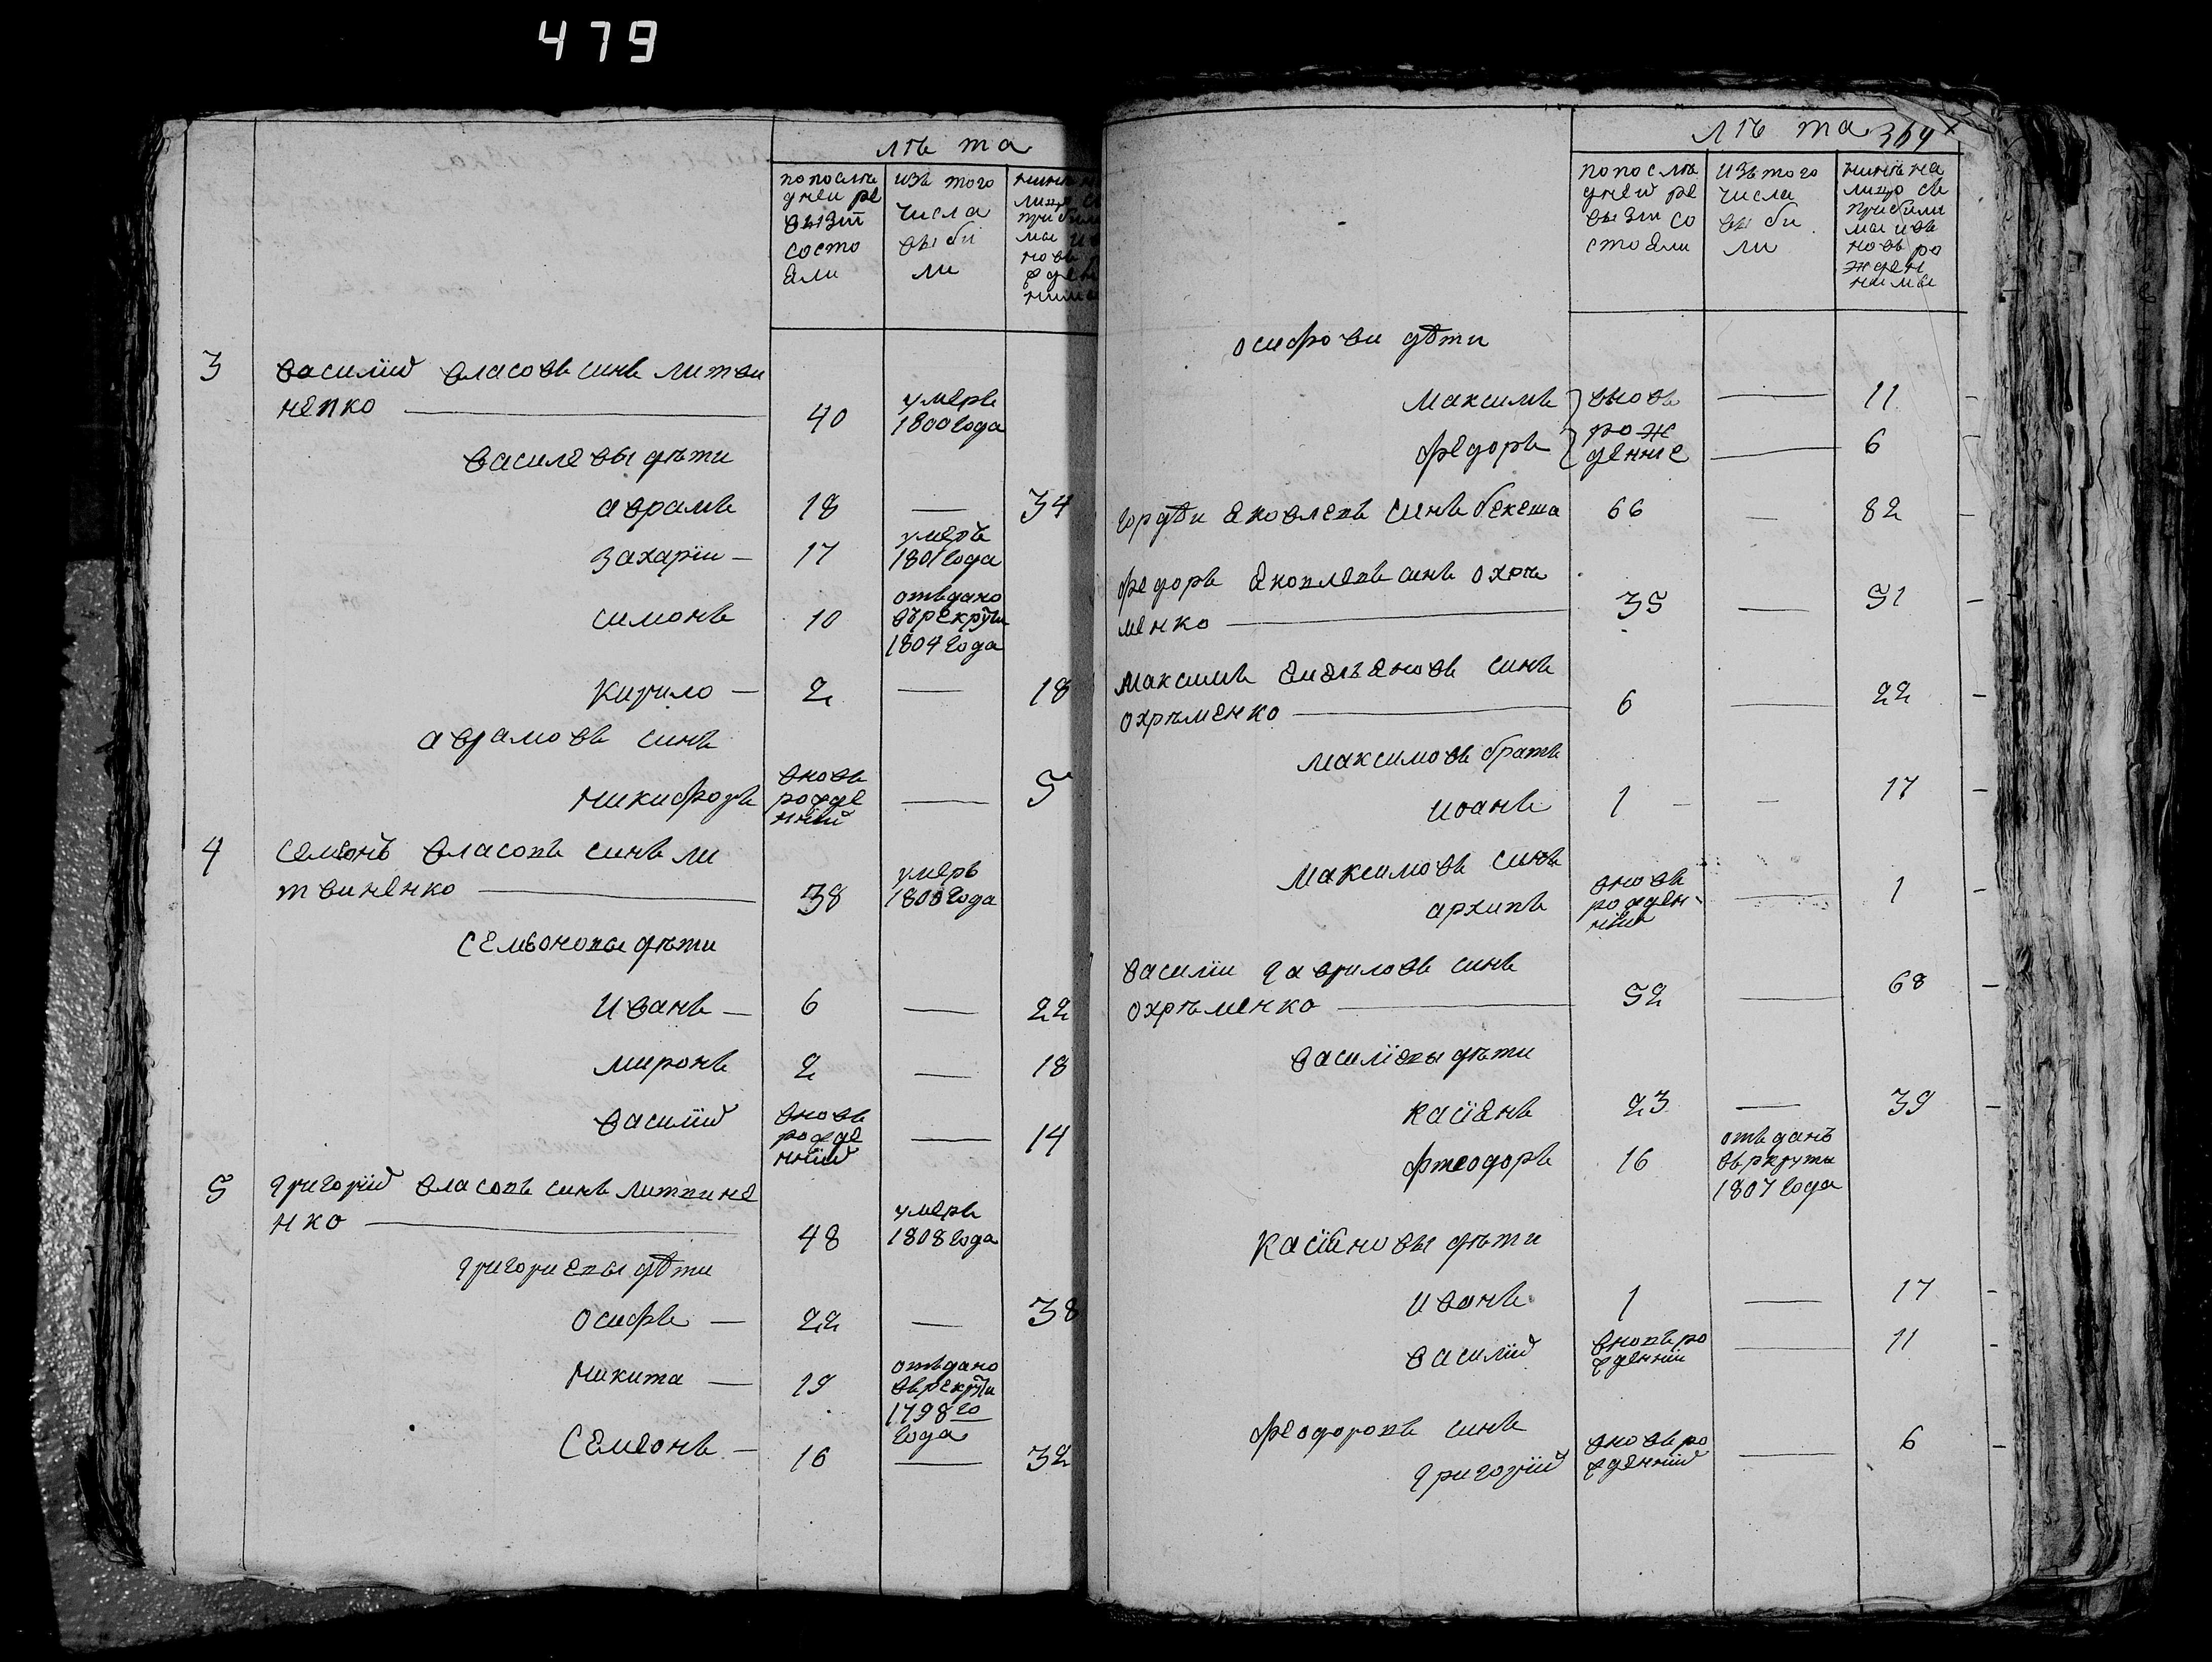 479
лѣ та
попослѣ
дней ре
визіи
состо
яли
изъ того
числа
выбы
ли
3
василий власовъ синъ литви
ненко
40
умеръ
1800 года
василевы дѣти
аврамъ
18
34
захарій
17
умеръ
1801 года
симонъ
10
отъдано
въ рекруты
1804 года
кирило
2
18
аврамовъ синъ
никифоръ
вновь
рожде
нний
5
4
семенъ власовъ синъ ли
твиненко
38
умеръ
1808 года
семеоновы дѣти
иванъ
6
22
миронъ
2
18
василій
вновь
рожде
нний
14
5
григорій власовъ синъ литвине
нко
48
умеръ
1808 года
григориевы дѣти
осифъ
22
38
никита
19
отъдано
въ рекруты
1798 го
года
семеонъ
16
32
лѣ та
364
попослѣ
дней ре
визіи со
стояли
изъ того
числа
выбы
ли
нинѣ на
лицо съ
прибили
ми и въ
новь ро
жден
ними
осифови дѣти
максимъ
вновь
11
федоръ
рож
денние
6
гордѣи яковлевъ синъ бекеша
66
82
федоръ яковлевъ синъ охрѣ
менко
35
51
максимъ емельяновъ синъ
охрѣменко
6
22
максимовъ братъ
иоанъ
1
17
максимовъ синъ
архипъ
вновь
рожден
ний
1
василіи гавриловъ синъ
охрѣменко
52
68
василіевы дѣти
касіянъ
23
39
фтеодоръ
16
отъданъ
въ ркруты
1807 года
касіяновы дѣти
иванъ
1
17
василій
вновь ро
жденний
11
феодоровъ синъ
григорій
вновь ро
жденний
6